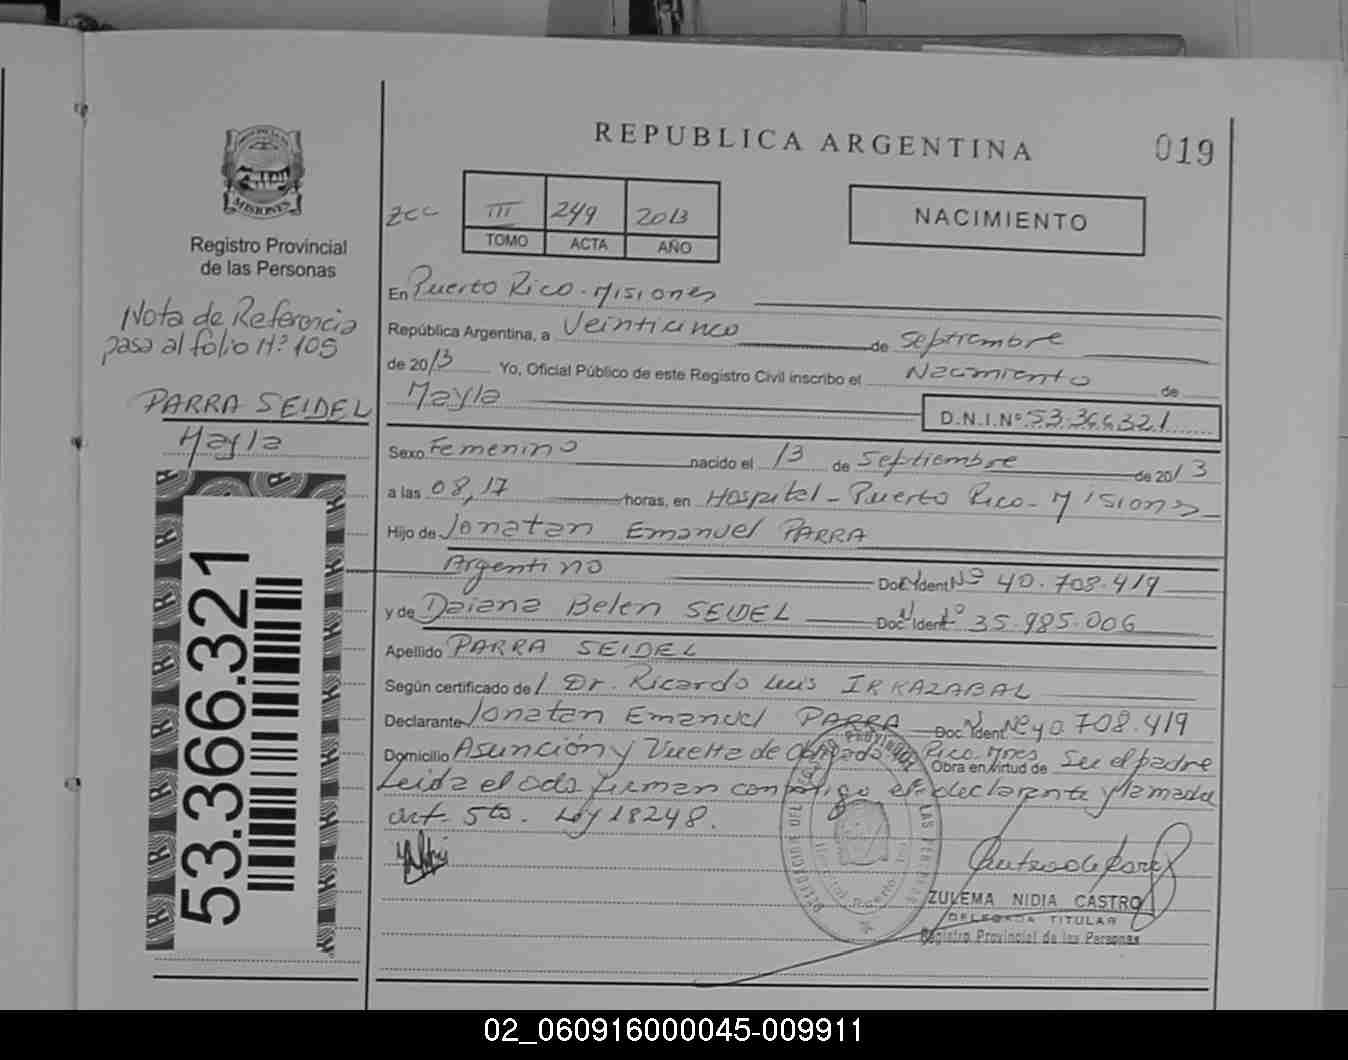 REPUBLICA ARGENTINA
019
PROVINCIA DE
MISIONES
Registro Provincial
de las Personas
Nota de Referencia
pasa al folio Nº 105
PARRA SEIDEL
Mayla
53.366.321
ZCC
III 249 2013
TOMO ACTA AÑO
NACIMIENTO
En Puerto Rico - Misiones
República Argentina, a Veinticinco de Septiembre
de 2013 Yo, Oficial Público de este Registro Civil inscribo el Nacimiento de
Mayla D.N.I.Nº 53.366.321
Sexo Femenino nacido el 13 de Septiembre de 2013
a las 08,17 horas, en Hospital - Puerto Rico - Misiones
Hijo de Jonatan Emanuel PARRA
Argentino Doc. Ident. Nº 40.708.419
y de Daiana Belen SEIDEL Doc. Ident. Nº 35.985.006
Apellido PARRA SEIDEL
Según certificado de l Dr. Ricardo Luis IRKAZABAL
Declarante Jonatan Emanuel PARRA Doc. Ident. Nº 40.708.419
Domicilio Asunción y Vuelta de Obligado Pto Rico Mnes
Obra en virtud de Ser el padre
Leida el acta firman conmigo el declarante y la madre
art. 5to. Ley 18248.
ZULEMA NIDIA CASTRO
DELEGADA TITULAR
Registro Provincial de las Personas
02_060916000045-009911